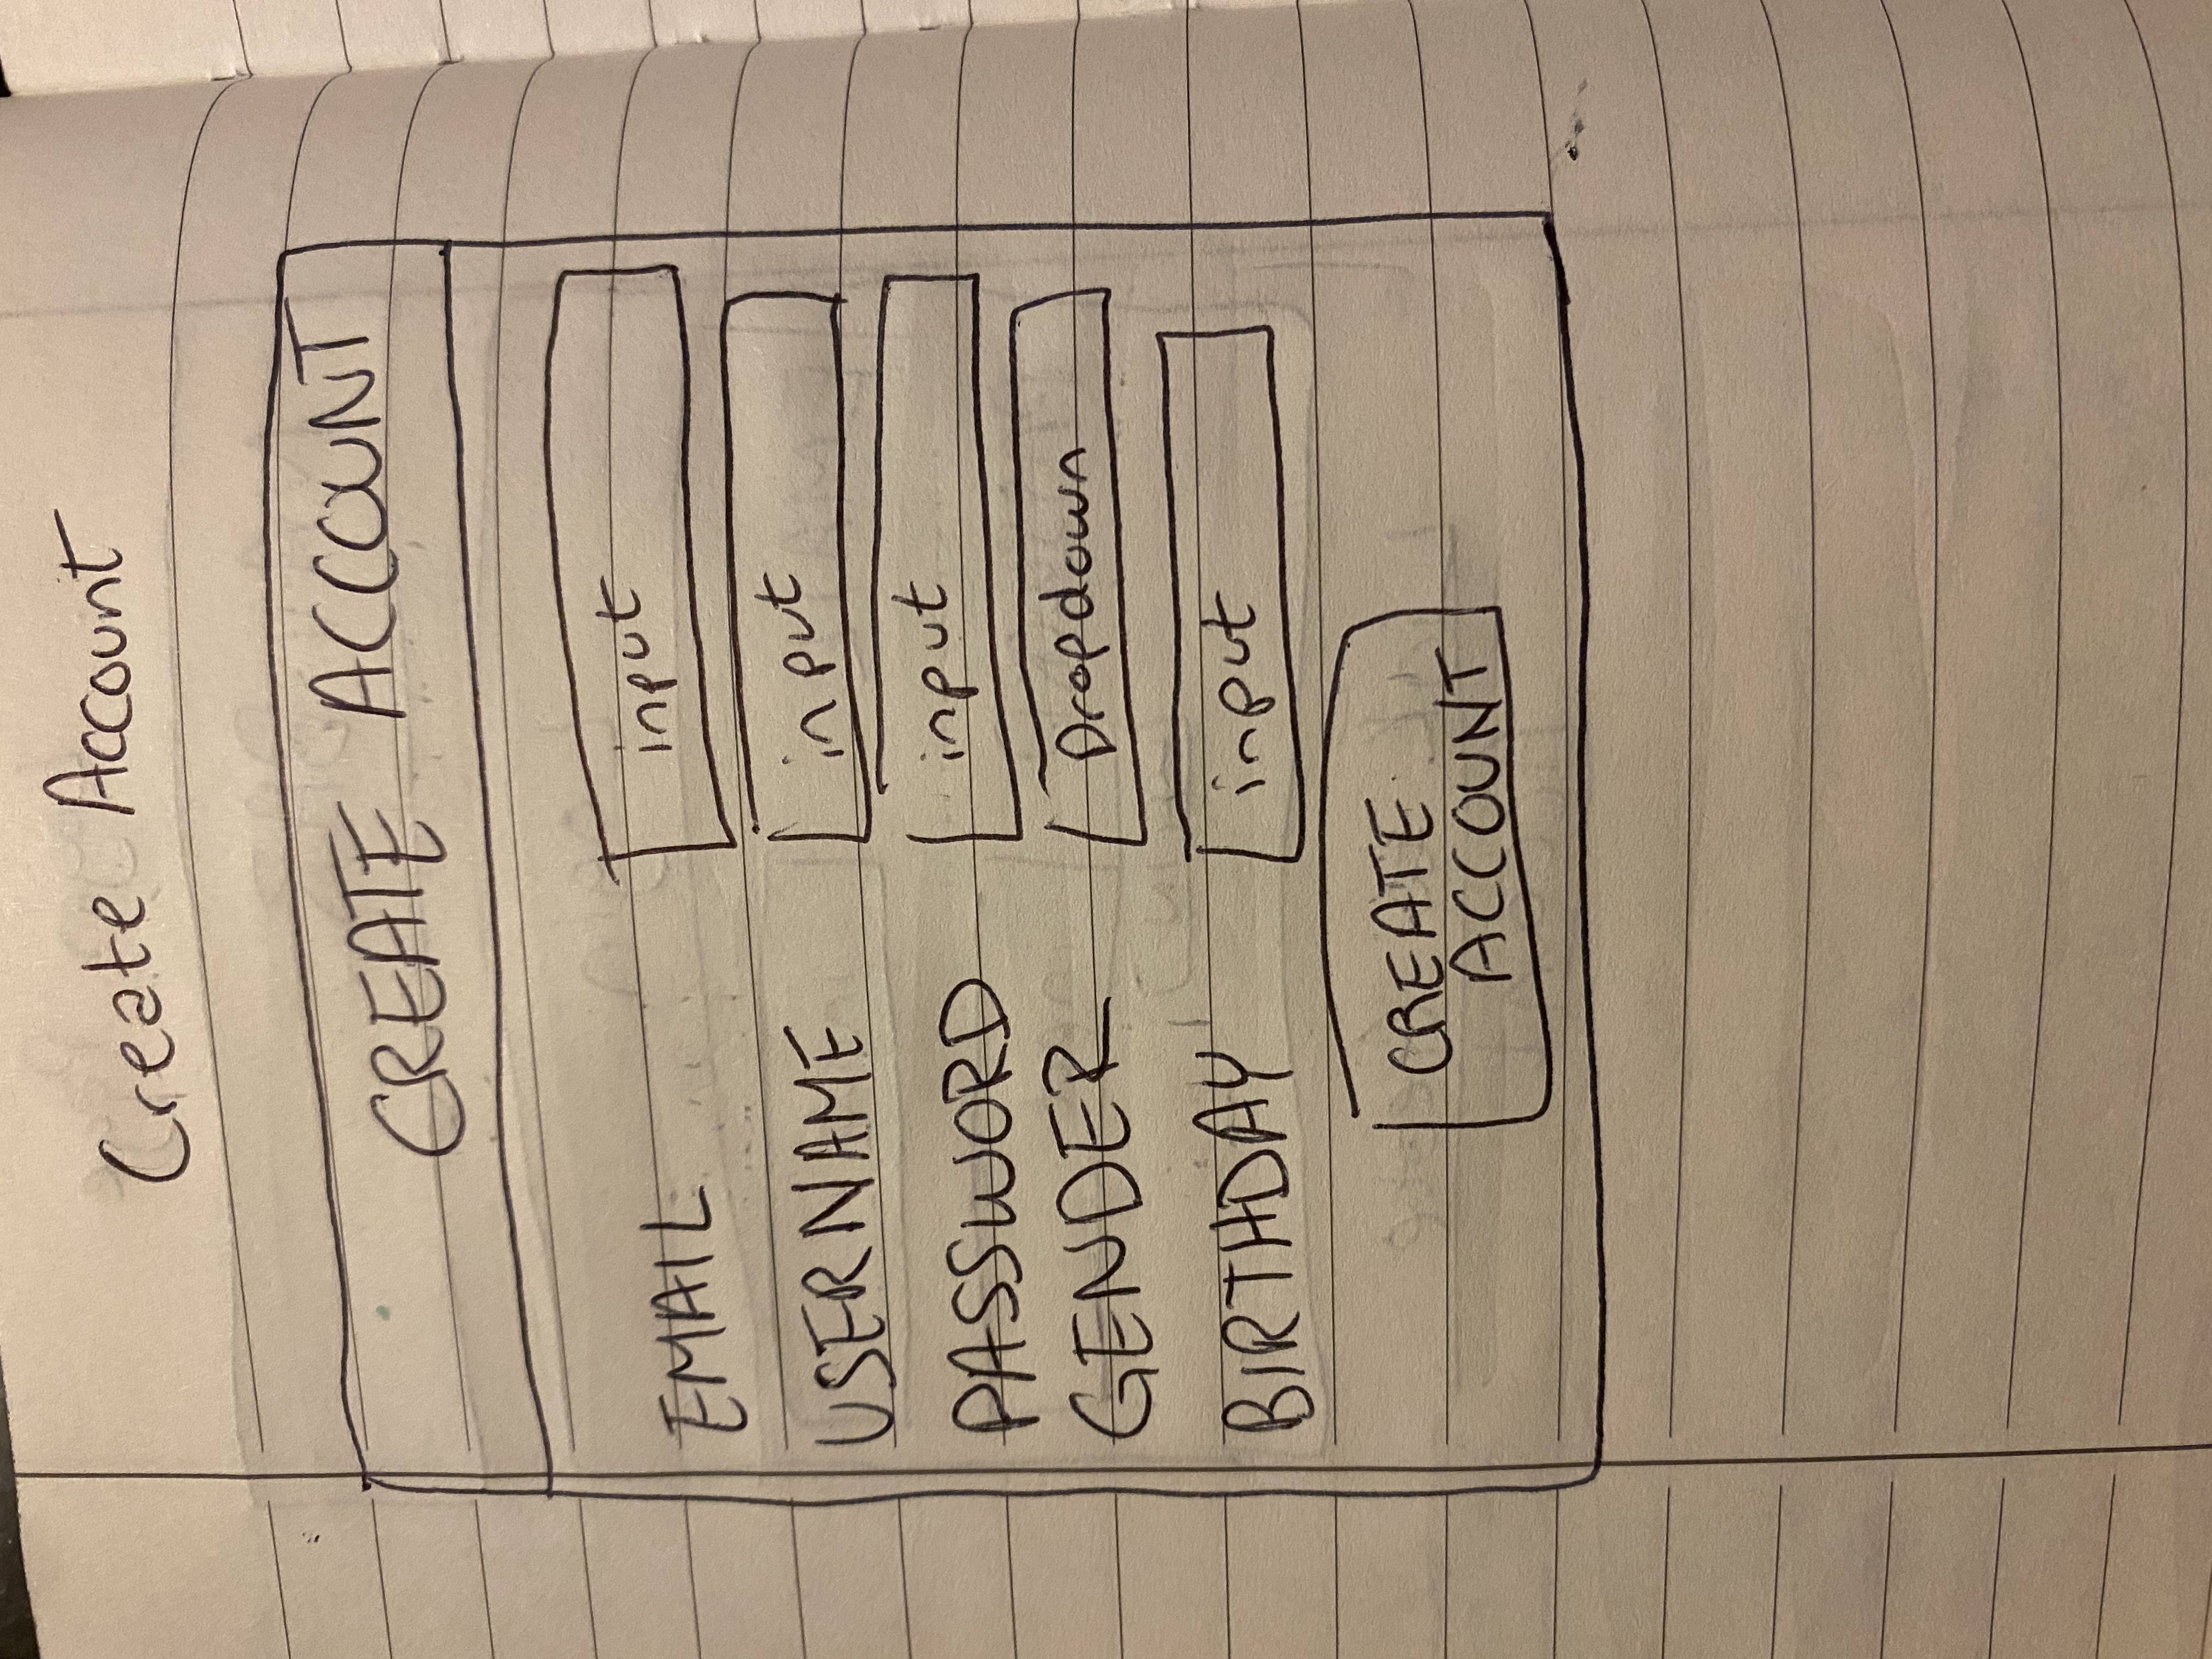 Create Account
CREATE ACCOUNT
EMAIL input
USERNAME input
PASSWORD input
GENDER Dropdown
BIRTHDAY input
CREATE
ACCOUNT